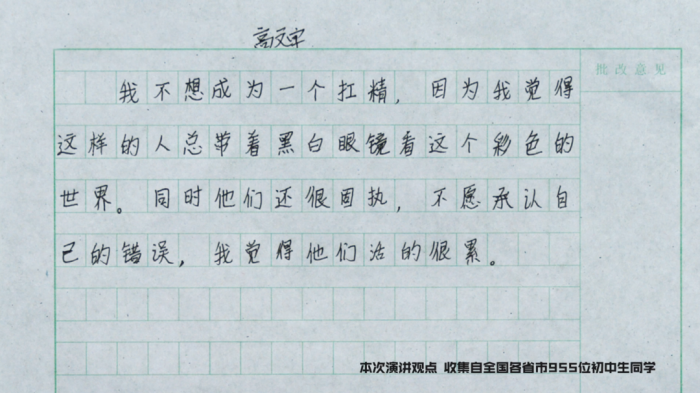 高文宇
批改意见
我不想成为一个扛精，因为我觉得
这样的人总带着黑白眼镜看这个彩色的
世界。同时他们还很固执，不愿承认自
己的错误，我觉得他们活的很累。
本次演讲观点 收集自全国各省市955位初中生同学